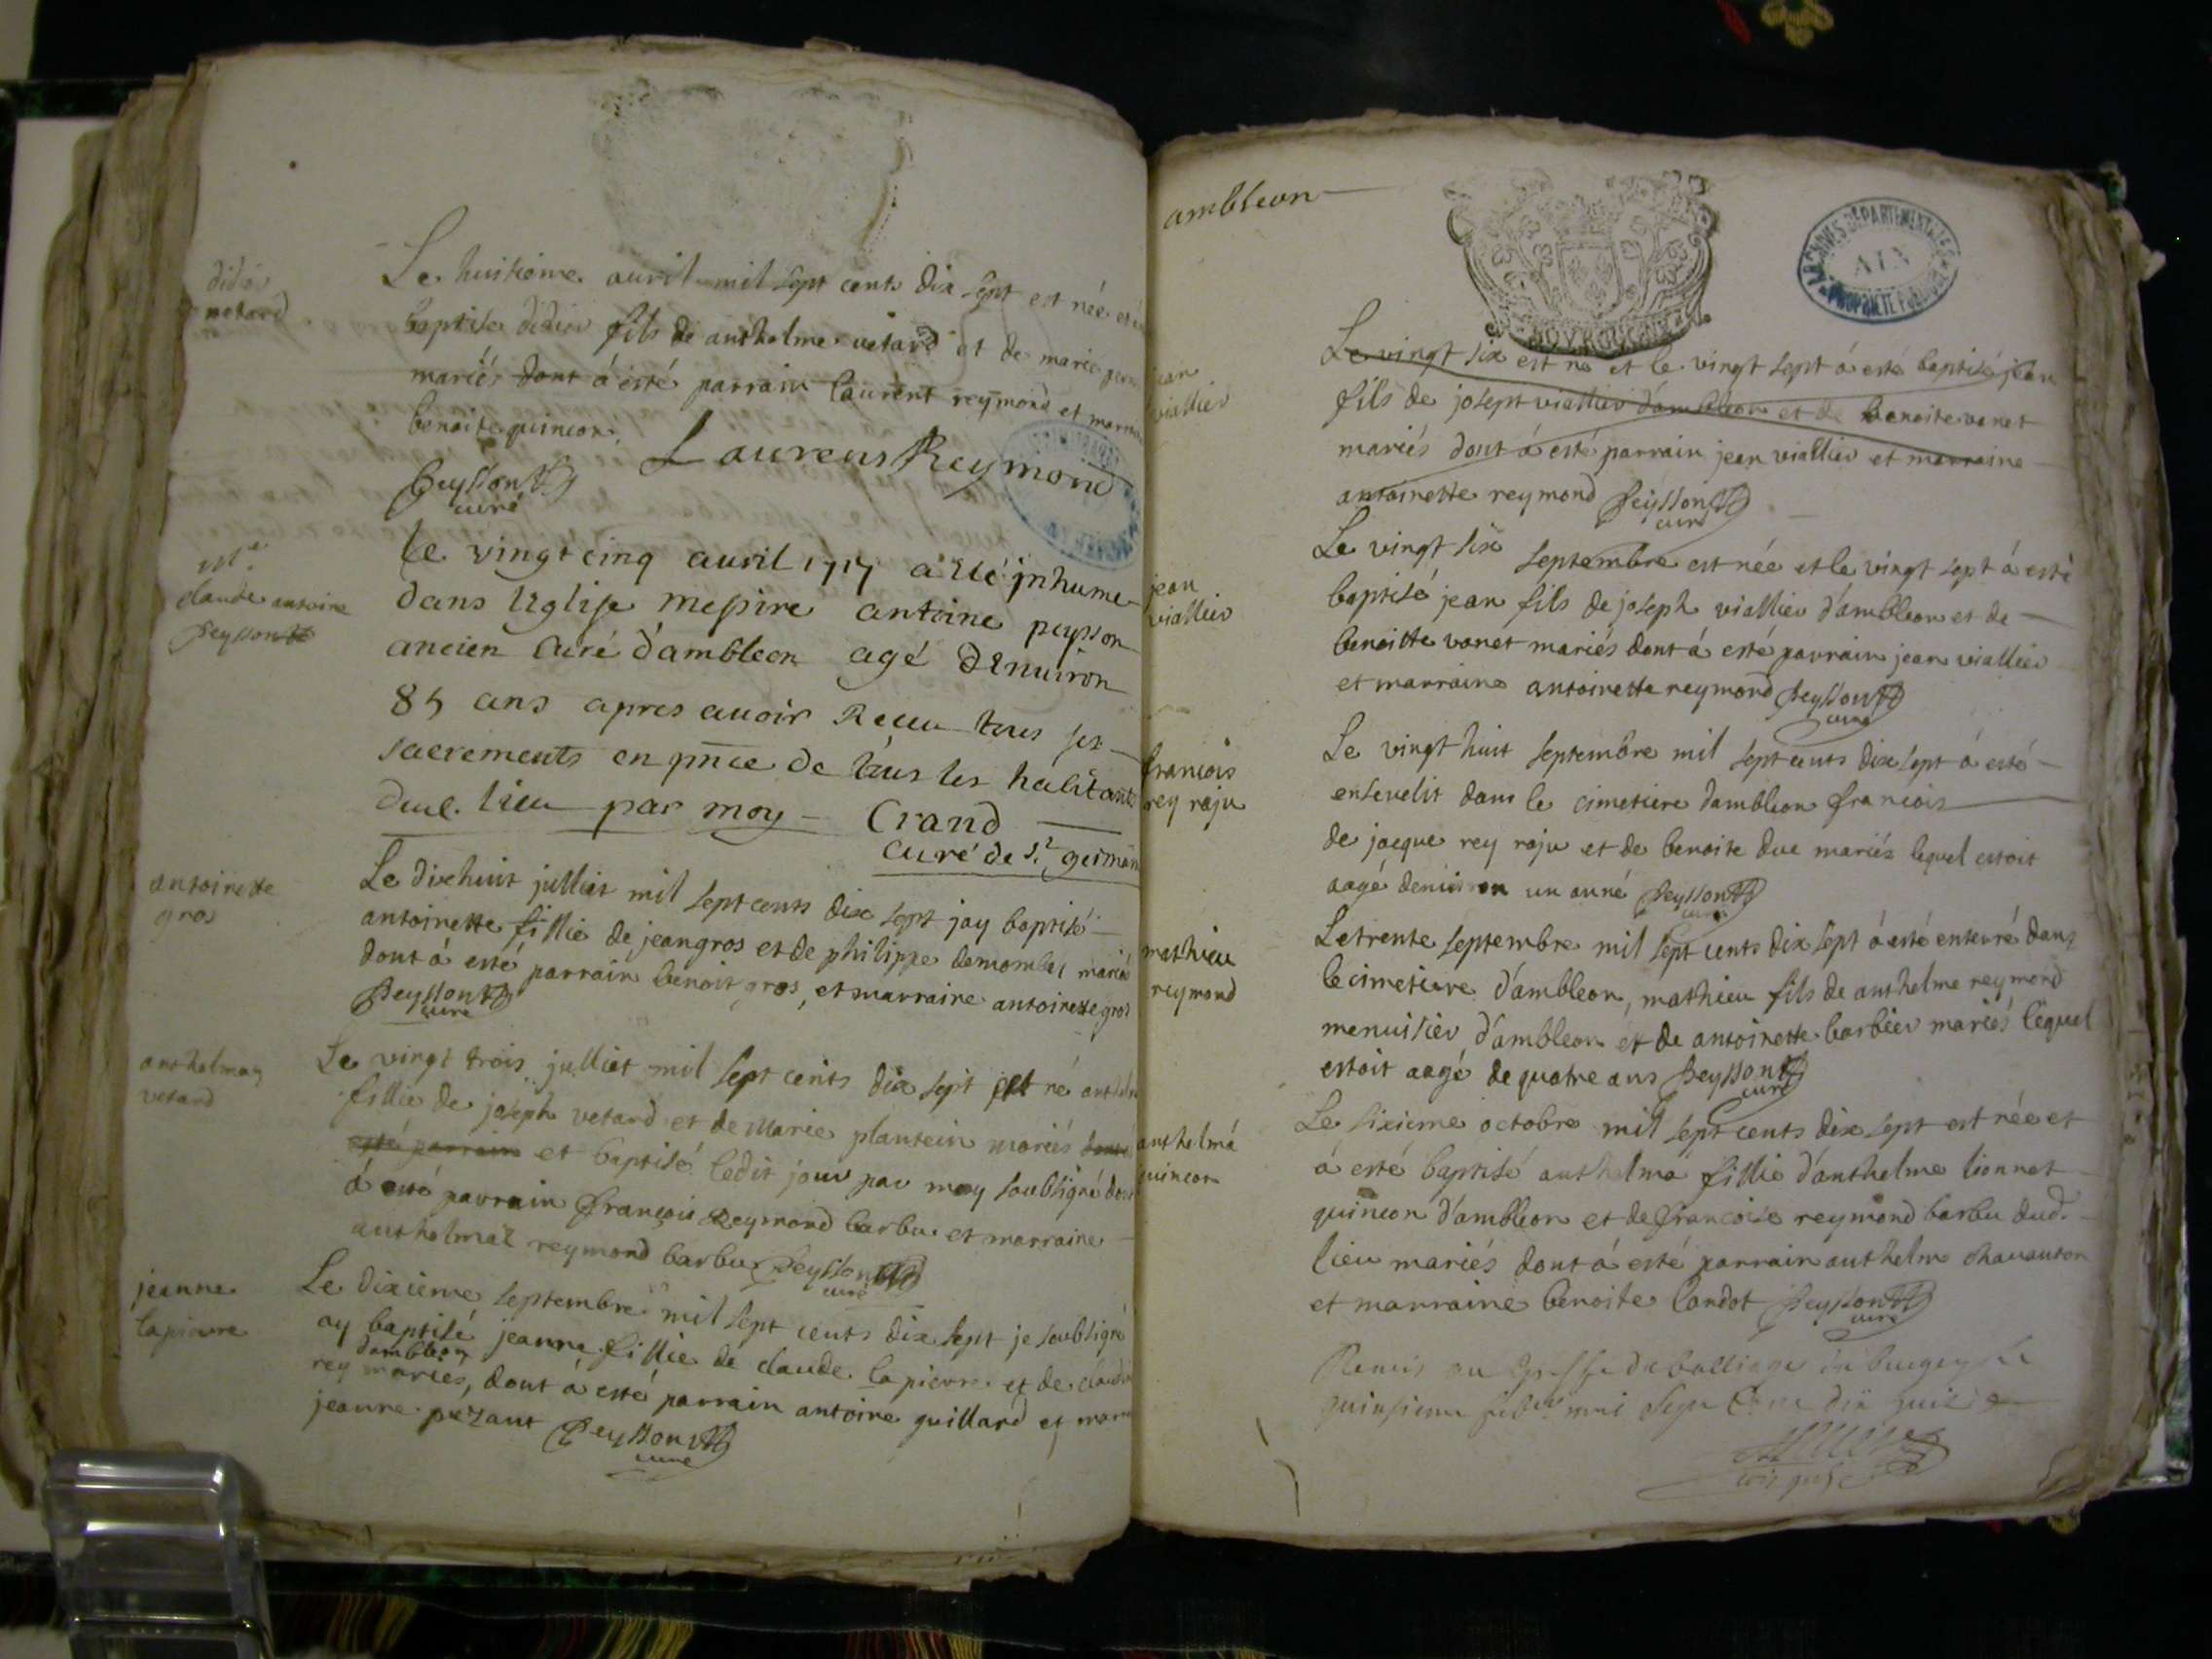 didier
vetard
Le huitieme avril mil sept cents dix sept est née et
baptise didier fils de anthelme vetard et de marie
mariés dont á esté parrain laurent reymond et
benoite quincon
Laurens Reymond
Peysson
curé
Mre
claude antoine
Peysson
le vingt cinq auril 1717 a eté jnhume
dans leglise messire antoine peysson
ancien Curé d'ambleon agé denuiron
85 ans apres auoir Receu tous ses
sacrements en pnce de tous les habitants
dud. lieu par moy - Crand
curé de st germain
antoinette
gros
Le dixhuit julliet mil sept cents dix sept jay baptisé
antoinette fillie de jean gros et de philippe demombel mariés
dont á esté parrain benoit gros, et marraine antoinette gros
Peysson
curé
vetard
Le vingt trois julliet mil sept cents dix sept est né
fillie de joseph vetard et de Marie plantein mariés
esté parrain et baptisé ledit jour par moy soubsigné dont
á esté parrain françois Reymond barbu et marraine
reymond barbu Peysson
curé
jeanne
lapierre
Le dixieme septembre mil sept cents dix sept je soubsigné
ay baptisé jeanne fillie de claude lapierre et de
dambleon
rey mariés, dont á esté parrain antoine guillard et
jeanne pezant Peysson
curé
ambleon
jean
viallier
Le vingt six est né et le vingt sept á esté baptisé jean
fils de josept viallier d'ambleon et de benoite vanet
mariés dont á esté parrain jean viallier et marraine
antoinette reymond Peysson
curé
jean
viallier
Le vingt six septembre est née et le vingt sept á esté
baptisé jean fils de joseph viallier d'ambleon et de
benoitte vanet mariés dont á esté parrain jean viallier
et marraine antoinette reymond Peysson
curé
francois
rey raju
Le vingt huit septembre mil sept cents dix sept á esté
ensevelit dans le cimetiere dambleon francois
de jacque rey raju et de benoite due mariés lequel estoit
aagé denviron un anné Peysson
curé
mathieu
reymond
Le trente septembre mil sept cents dix sept á esté enterré dans
le cimetiere d'ambleon, mathieu fils de anthelme reymond
menuisier d'ambleon et de antoinette barbier mariés lequel
estoit aagé de quatre ans Peysson
curé
anthelma
quincon
Le sixieme octobre mil sept cents dix sept est née et
á esté baptisé anthelma fillie d'anthelme lionnet
quincon d'ambleon et de francoise reymond barbu dud.
lieu mariés dont á esté parrain anthelm chavanton
et marraine benoite landot Peysson
curé
Remis au Greffe du balliage du bugey le
ARCHIVES DEPARTEMENTALES
AIN
PROPRIETE PUBLIQUE
BOVRGOGNE